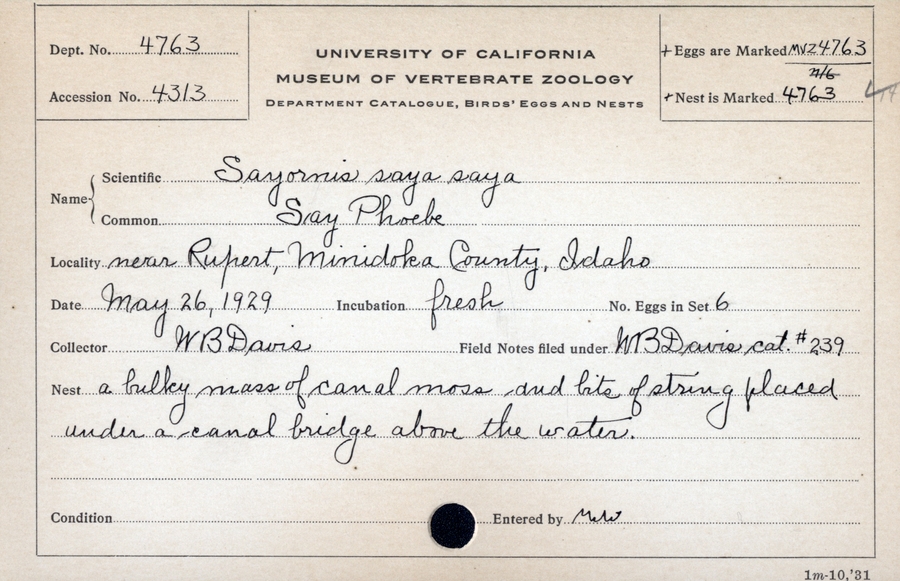 Dept. No. 4763
Accession No. 4313
UNIVERSITY OF CALIFORNIA
MUSEUM OF VERTEBRATE ZOOLOGY
DEPARTMENT CATALOGUE, BIRDS' EGGS AND NESTS
+ Eggs are Marked MVZ4763
n/6
+ Nest is Marked 4763
Name { Scientific Sayornis saya saya
Common Say Phoebe
Locality near Rupert, Minidoka County, Idaho
Date May 26, 1929 Incubation fresh No. Eggs in Set 6
Collector WBDavis Field Notes filed under WBDavis cat. #239
Nest a bulky mass of canal moss and bits of string placed
under a canal bridge above the water.
Condition Entered by
1m-10,'31